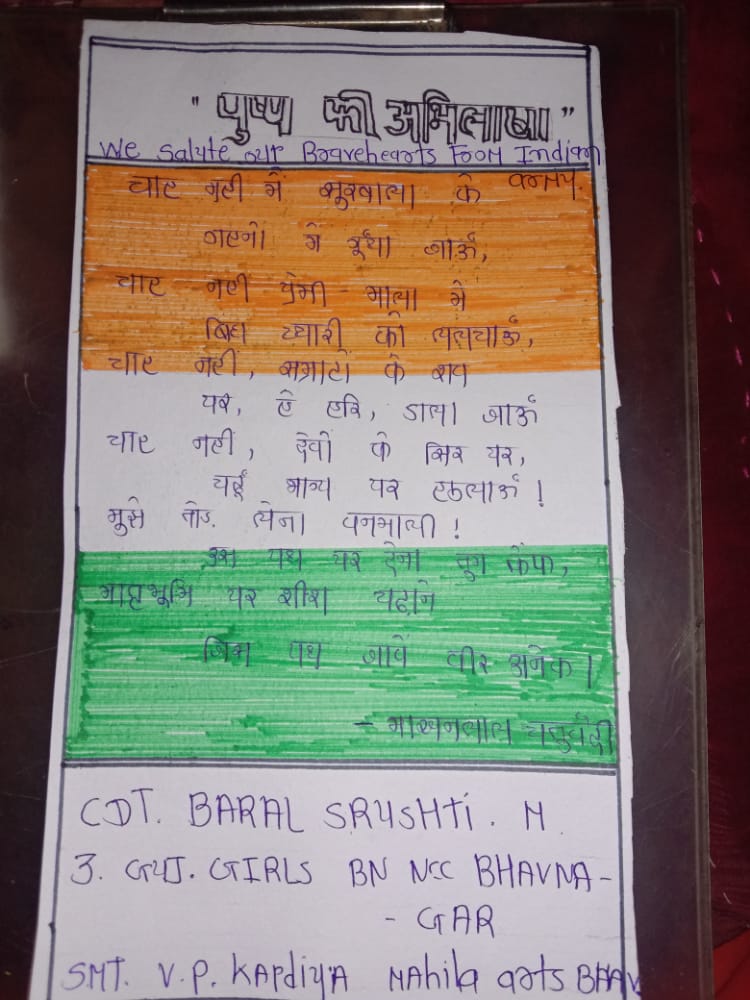 "पुष्प की अभिलाषा"
We Salute our Bravehearts From Indian
army.
चाह नही में सुरबाला के
गहनो मे गूंथा जाऊँ,
चाह नही प्रेमी माला मे
बिंध प्यारी को ललचाऊँ,
चाह नहीं, सम्राटों के शव
पर, हे हरि, डाला जाऊँ
चाह नहीं, देवों के सिर पर,
चढूँ भाग्य पर इठलाऊँ!
मुझे तोड. लेना वनमाली!
उस पथ पर देना तुम फेंक,
मातृभूमि पर शीश चढ़ाने
जिस पथ जावें वीर अनेक।
- माखनलाल चतुर्वेदी
CDT. BARAL SRUSHTi. M
3. GUJ. GIRLS BN NCC BHAVNA-
- GAR
SMT. V.P. KAPdiYA MAhila arts BHAV